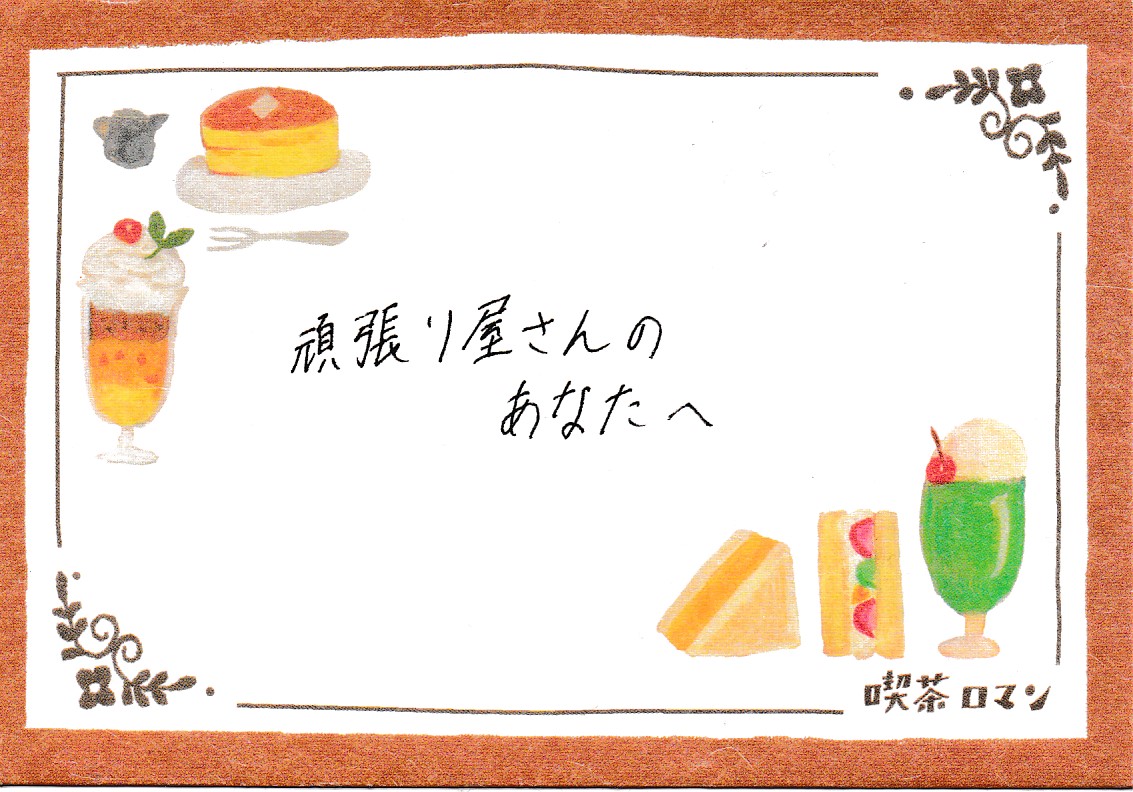 頑張り屋さんの
あなたへ
喫茶ロマン